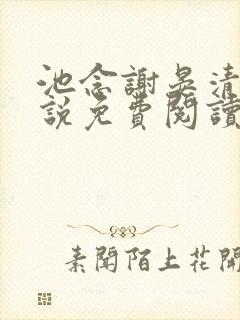 池念謝晏清
說免費閱讀
素聞陌上花開